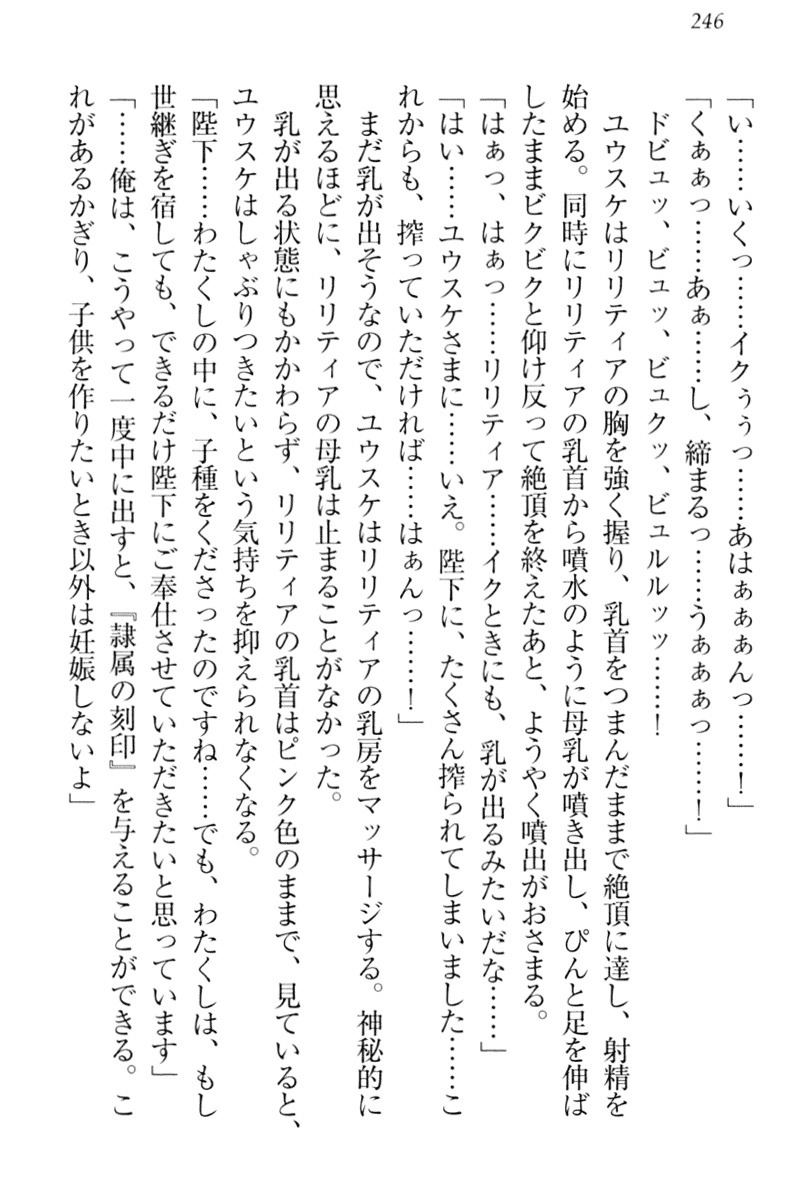 246
「い……いくっ……イクぅぅっ……あはぁぁぁんっ……！」
「くぁぁっ……あぁ……し、締まるっ……うぁぁぁっ……！」
ドビュッ、ビュッ、ビュクッ、ビュルルッッ……！
ユウスケはリリティアの胸を強く握り、乳首をつまんだままで絶頂に達し、射精を
始める。同時にリリティアの乳首から噴水のように母乳が噴き出し、ぴんと足を伸ば
したままビクビクと仰け反って絶頂を終えたあと、ようやく噴出がおさまる。
「はぁっ、はぁっ……リリティア……イクときにも、乳が出るみたいだな……」
「はい……ユウスケさまに……いえ。陛下に、たくさん搾られてしまいました……こ
れからも、搾っていただければ……はぁんっ……！」
まだ乳が出そうなので、ユウスケはリリティアの乳房をマッサージする。神秘的に
思えるほどに、リリティアの母乳は止まることがなかった。
乳が出る状態にもかかわらず、リリティアの乳首はピンク色のままで、見ていると、
ユウスケはしゃぶりつきたいという気持ちを抑えられなくなる。
「陛下……わたくしの中に、子種をくださったのですね……でも、わたくしは、もし
世継ぎを宿しても、できるだけ陛下にご奉仕させていただきたいと思っています」
「……俺は、こうやって一度中に出すと、『隷属の刻印』を与えることができる。こ
れがあるかぎり、子供を作りたいとき以外は妊娠しないよ」